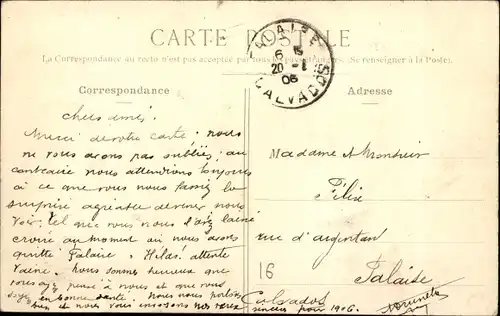 CARTE POSTALE
La Correspondance au recto n'est pas acceptée par tous les pays étrangers. (Se renseigner à la Poste).
FALAISE
6
20 - 1
06
CALVADOS
Correspondance
Adresse
chers amis!
Merci de votre carte; nous
ne vous avons pas oubliés; au
contraire nous attendions toujours
à ce que vous nous fassiez la
surprise agréable de venir nous
voir; tel que vous nous l'aviez laissé
croire au moment où nous avons
quitté Falaise. Hélas! attente
vaine. Nous sommes heureux que
vous ayez pensé à nous et que vous
soyez en bonne santé. Nous nous portons
bien et nous vous envoyons nos vœux
sincères pour 1906.
Madame & Monsieur
Félix
rue d'argentan
16
Falaise
Calvados